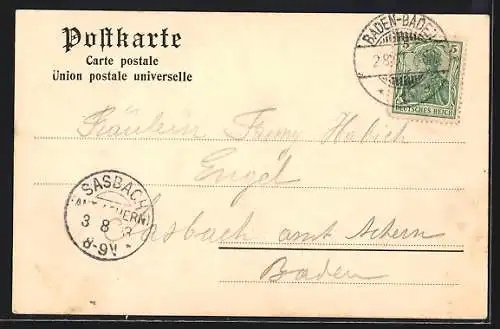 Postkarte
Carte postale
Union postale universelle
BADEN-BADEN
2 8
5 5
DEUTSCHES REICH
Fräulein Fanny Habich
Engel
Sasbach amt Achern
Baden
SASBACH
(AMT ACHERN)
3 8 03
8-9V